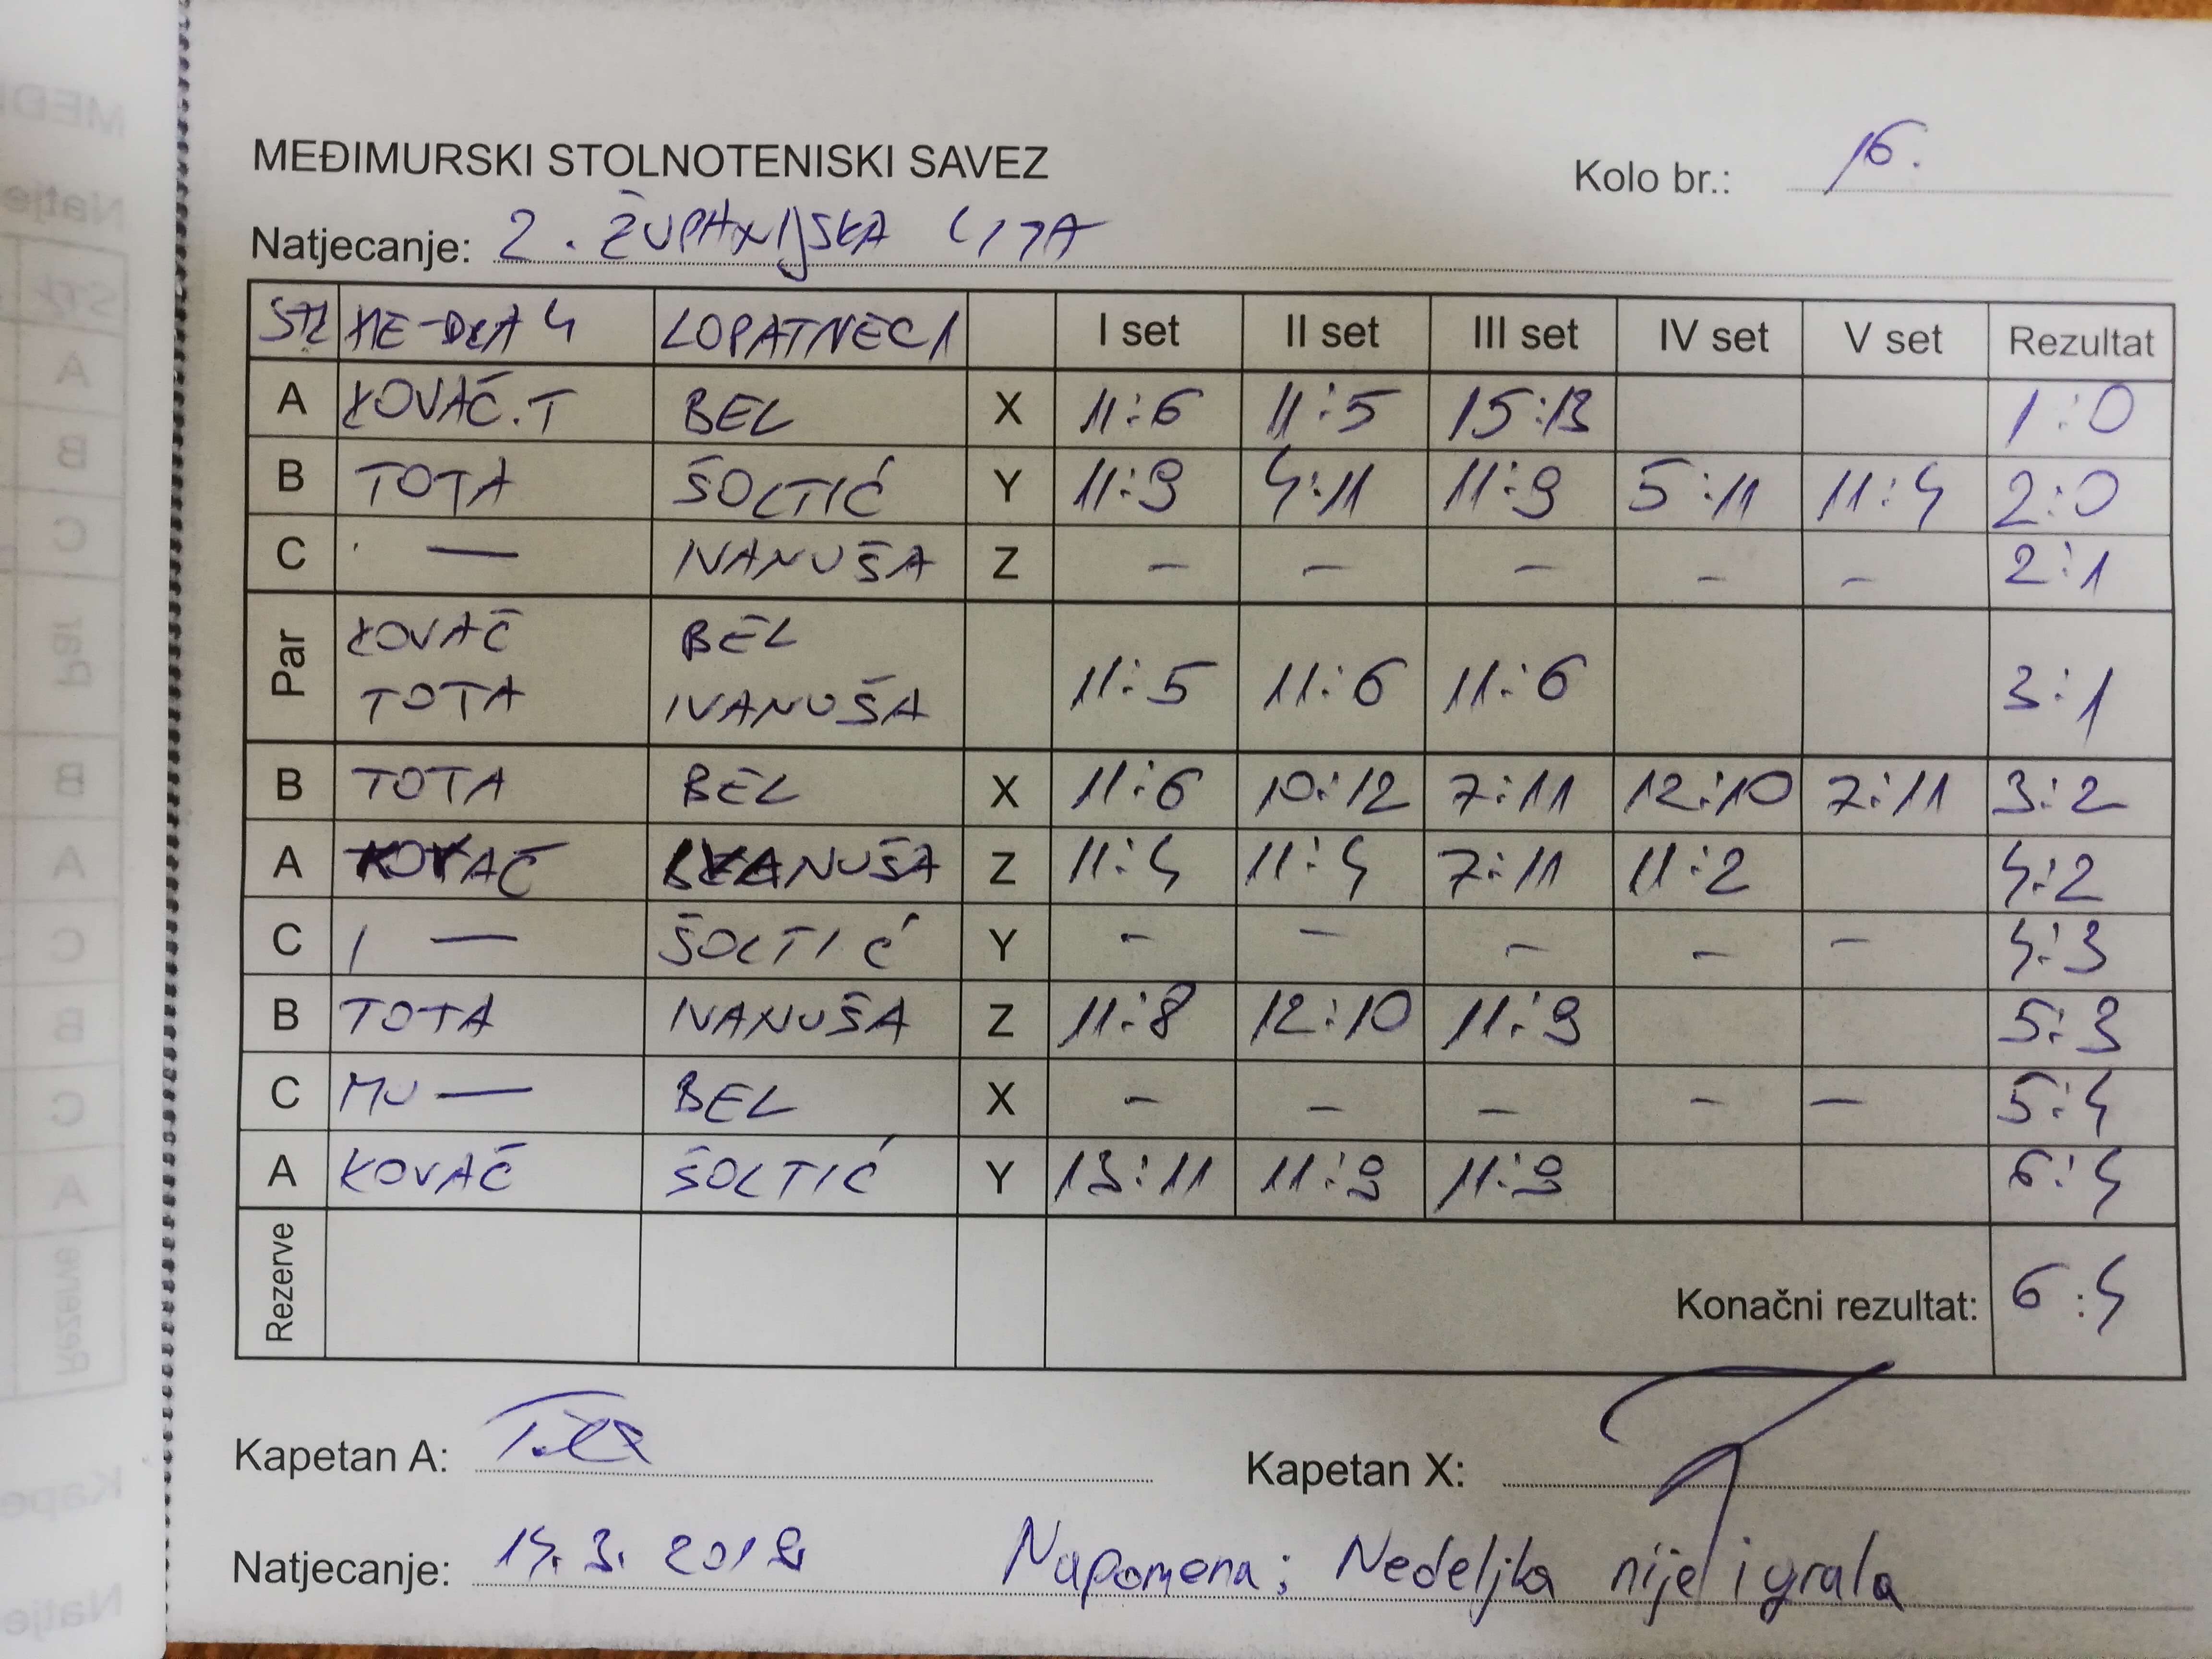 MEĐIMURSKI STOLNOTENISKI SAVEZ
Kolo br.: 16.
Natjecanje: 2. ŽUPANIJSKA LIGA
ME-DEA 4 LOPATINEC 1 I set II set III set IV set V set Rezultat
A KOVAČ.T BEL X 11:6 11:5 15:13 1:0
B TOTA ŠOLTIĆ Y 11:9 4:11 11:9 5:11 11:4 2:0
C — IVANUŠA Z - - - - - 2:1
Par KOVAČ BEL
TOTA IVANUŠA 11:5 11:6 11:6 3:1
B TOTA BEL X 11:6 10:12 7:11 12:10 7:11 3:2
A KOVAČ IVANUŠA Z 11:4 11:4 7:11 11:2 4:2
C / — ŠOLTIĆ Y - - - - - 4:3
B TOTA IVANUŠA Z 11:8 12:10 11:9 5:3
C MU — BEL X - - - - — 5:4
A KOVAČ ŠOLTIĆ Y 13:11 11:9 11:9 6:4
Rezerve Konačni rezultat: 6:4
Kapetan A: Kapetan X:
Natjecanje: 14.3. Napomena: Nedeljka nije igrala